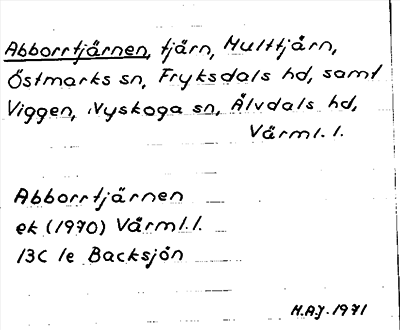 Abborrtjärnen, tjärn, Multtjärn,
Östmarks sn, Fryksdals hd, samt
Viggen, Nyskoga sn, Älvdals hd,
Värml. l.
Abborrtjärnen
ek (1970) Värml. l.
13C 1e Backsjön
H.A.J. 1971